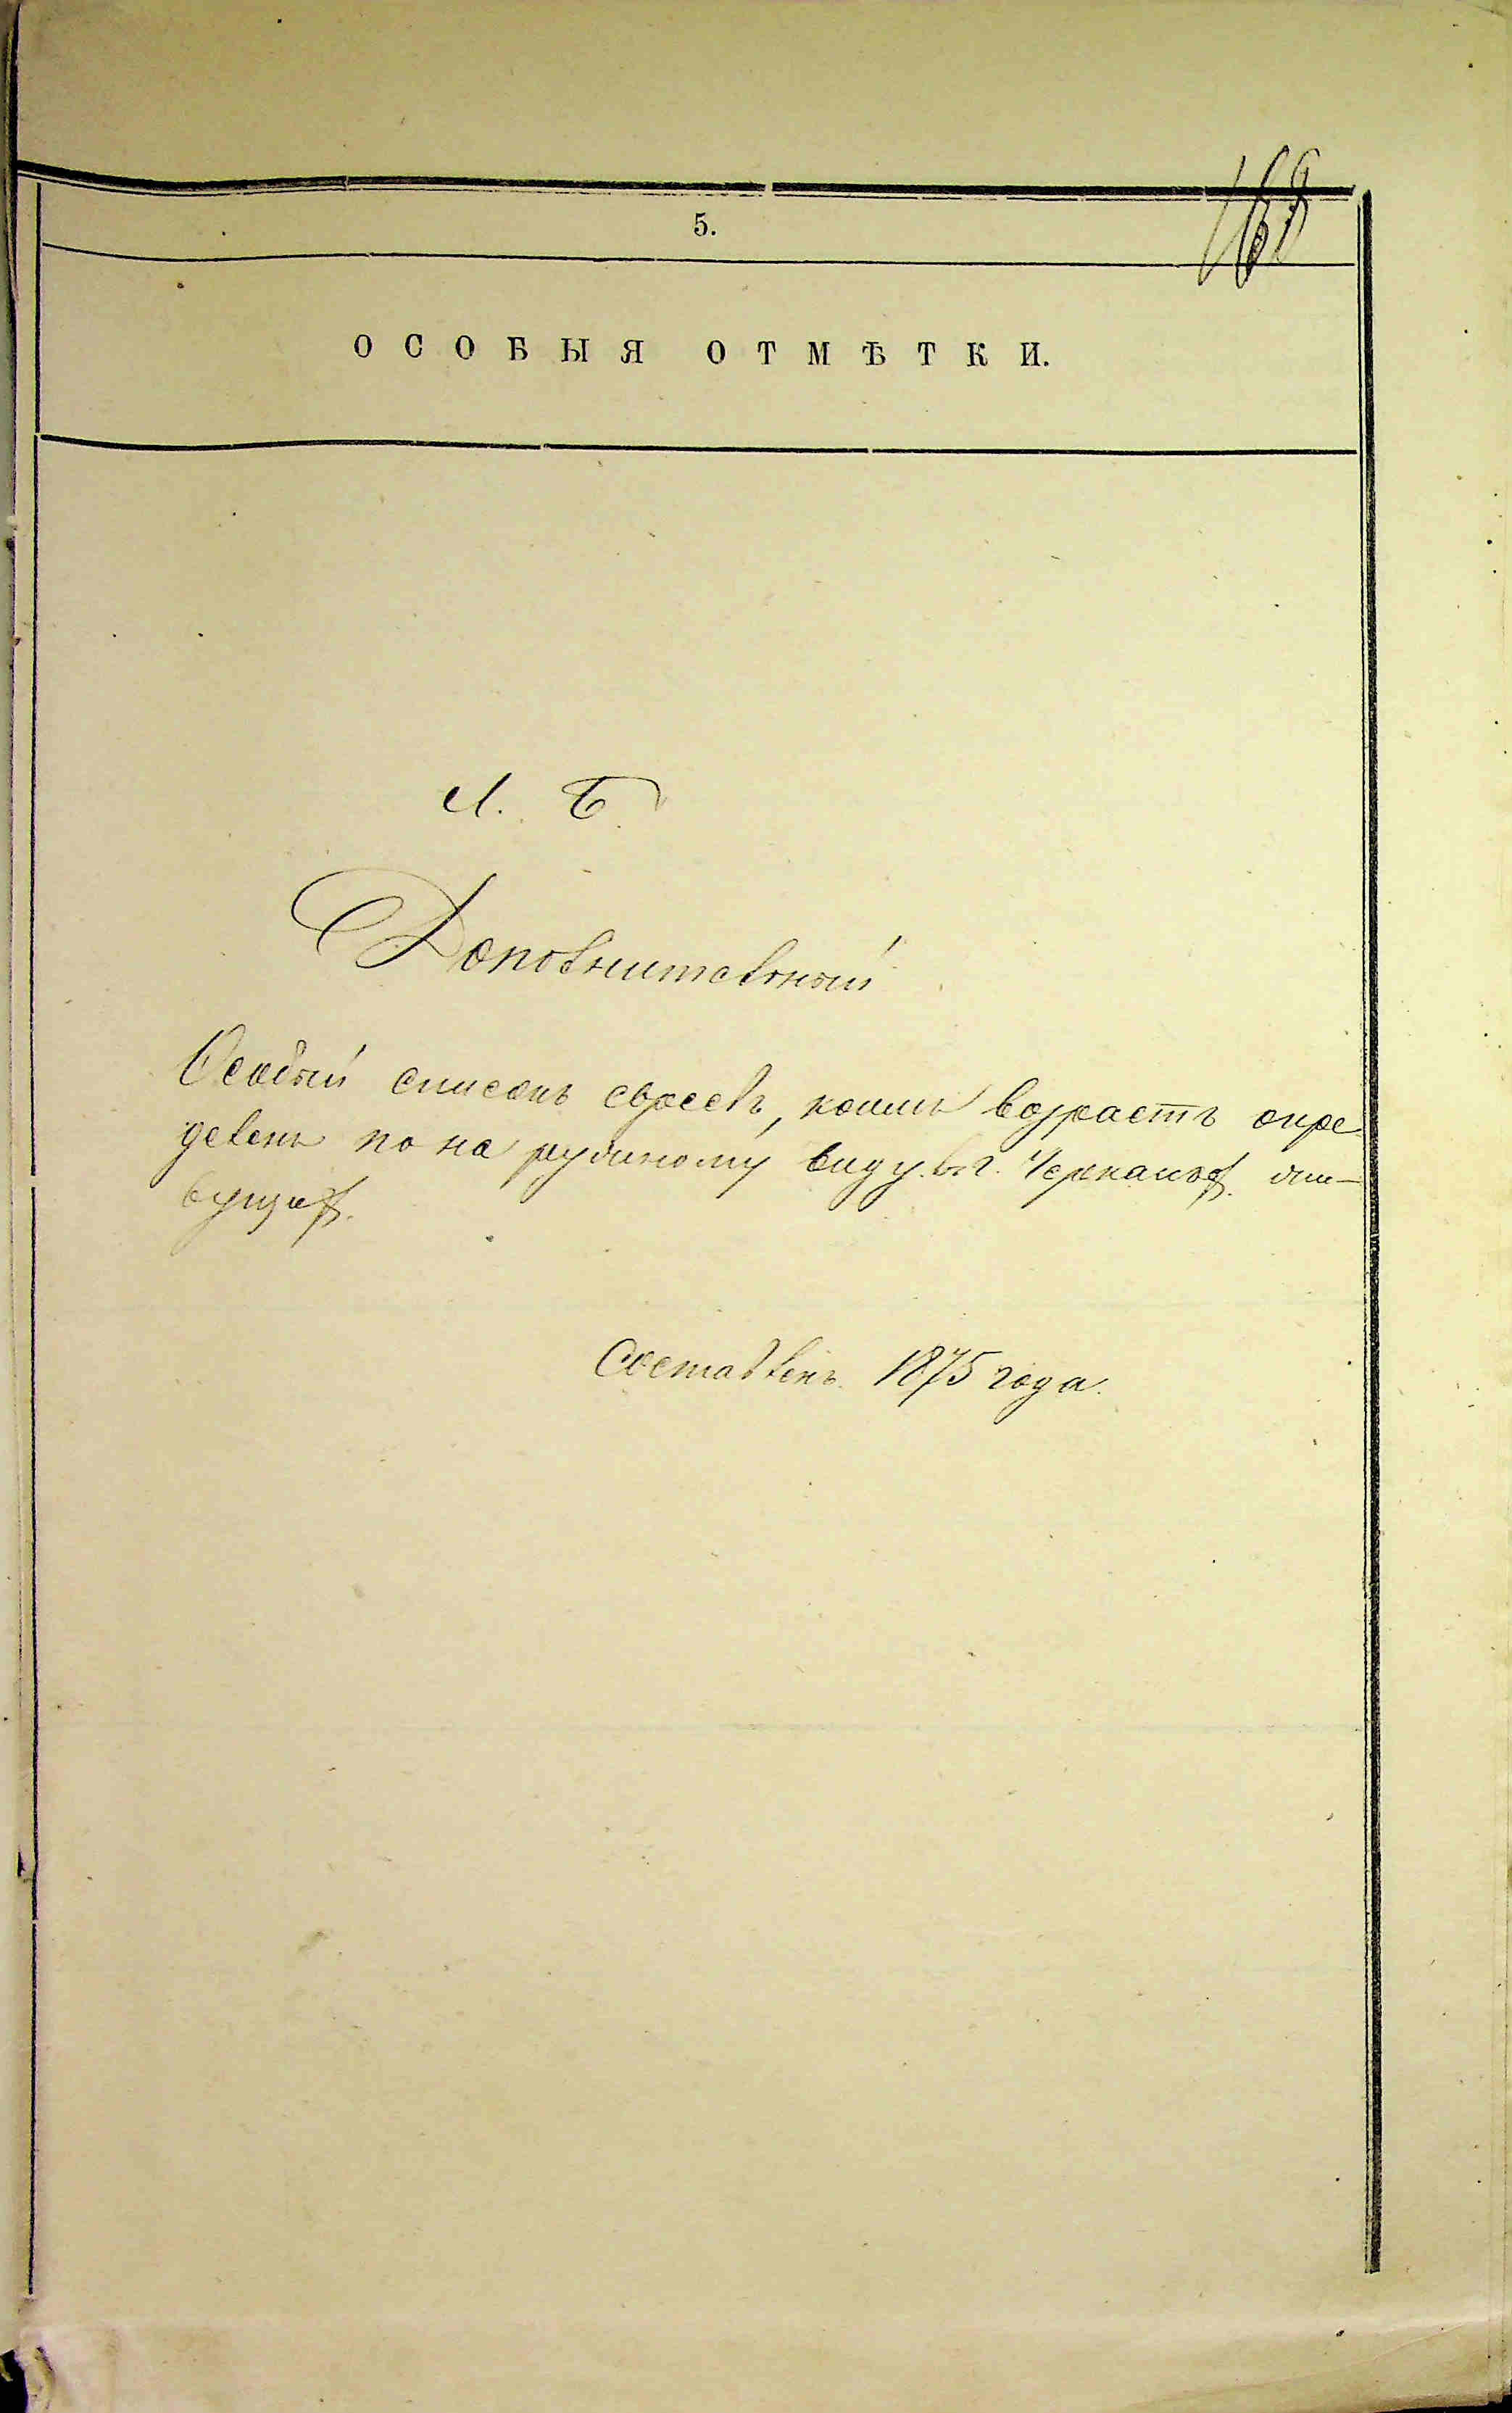 168
5.
ОСОБЫЯ ОТМѢТКИ.
Л. Б.
Дополнительный
Особый списокъ евреевъ, коимъ возрастъ опре-
деленъ по наружному виду въ г. Черкассахъ жи-
вущихъ.
Составленъ 1875 года.